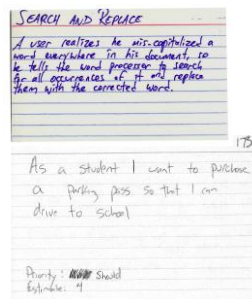 SEARCH AND REPLACE
A user realizes he mis-capitalized a
word everywhere in his document, so
he tells the word processor to search
for all occurrences of it and replace
them with the corrected word.
173
As a student I want to purchase
a parking pass so that I can
drive to school
Priority: Should
Estimate: 4